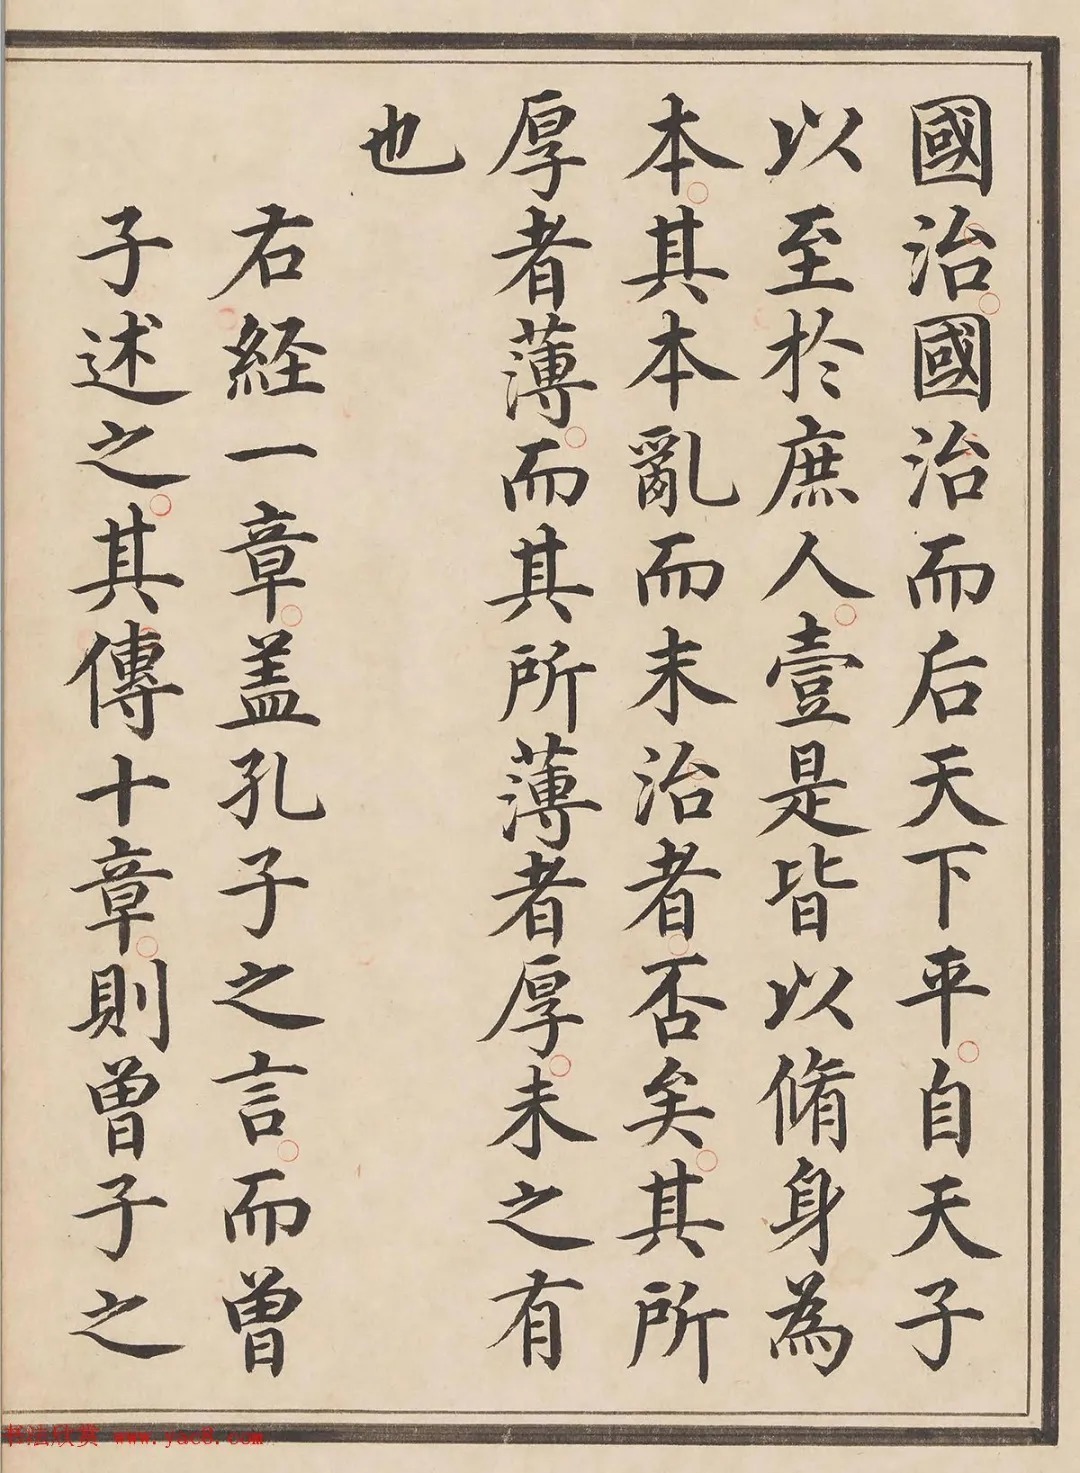 國治國治而后天下平自天子
以至於庶人壹是皆以脩身為
本其本亂而末治者否矣其所
厚者薄而其所薄者厚未之有
也
右経一章盖孔子之言而曾
子述之其傳十章則曾子之
书法欣赏 www.yac8.com